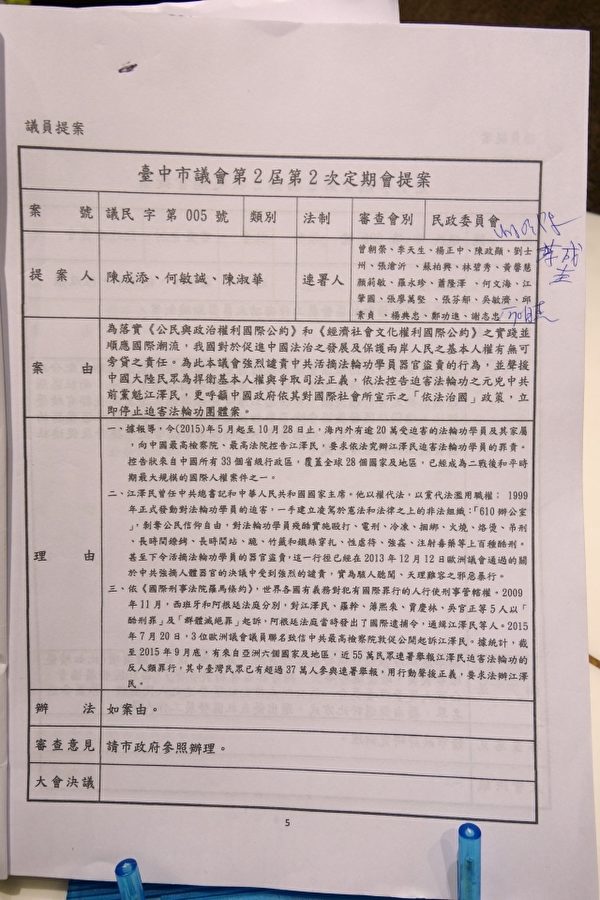 議員提案
臺中市議會第2屆第2次定期會提案
案號 議民字第005號 類別 法制 審查會別 民政委員會
提案人 陳成添、何敏誠、陳淑華 連署人
曾朝榮、李天生、楊正中、陳政顯、劉士
州、張滄沂、蘇柏興、林碧秀、黃馨慧
顏莉敏、羅永珍、蕭隆澤、何文海、江
肇國、張廖萬堅、張芬郁、吳敏濟、邱
素貞、楊典忠、鄭功進、謝志忠
案由
為落實《公民與政治權利國際公約》和《經濟社會文化權利國際公約》之實踐並
順應國際潮流，我國對於促進中國法治之發展及保護兩岸人民之基本人權有無可
旁貸之責任。為此本議會強烈譴責中共活摘法輪功學員器官盜賣的行為，並聲援
中國大陸民眾為捍衛基本人權與爭取司法正義，依法控告迫害法輪功之元兇中共
前黨魁江澤民，更呼籲中國政府依其對國際社會所宣示之「依法治國」政策，立
即停止迫害法輪功團體案。
理由
一、據報導，今(2015)年5月起至10月28日止，海內外有逾20萬受迫害的法輪功學員及其家屬
，向中國最高檢察院、最高法院控告江澤民，要求依法究辦江澤民迫害法輪功學員的罪責。
控告狀來自中國所有33個省級行政區，覆蓋全球28個國家及地區，已經成為二戰後和平時
期最大規模的國際人權案件之一。
二、江澤民曾任中共總書記和中華人民共和國國家主席。他以權代法，以黨代法濫用職權；1999
年正式發動對法輪功學員的迫害，一手建立凌駕於憲法和法律之上的非法組織：「610辦公室
」，剝奪公民信仰自由，對法輪功學員殘酷實施毆打、電刑、冷凍、捆綁、火燒、烙燙、吊刑
、長時間鐐銬、長時間站、跪、竹籤和鐵絲穿扎、性虐待、強姦、注射毒藥等上百種酷刑。
甚至下令活摘法輪功學員的器官盜賣，這一行徑已經在2013年12月12日歐洲議會通過的關
於中共強摘人體器官的決議中受到強烈的譴責，實為駭人聽聞、天理難容之邪惡暴行。
三、依《國際刑事法院羅馬條約》，世界各國有義務對犯有國際罪行的人行使刑事管轄權。2009
年11月，西班牙和阿根廷法庭分別，對江澤民、羅幹、薄熙來、賈慶林、吳官正等5人以「
酷刑罪」及「群體滅絕罪」起訴，阿根廷法庭當時發出了國際逮捕令，通緝江澤民等人。2015
年7月20日，3位歐洲議會議員聯名致信中共最高檢察院敦促公開起訴江澤民。據統計，截
至2015年9月底，有來自亞洲六個國家及地區，近55萬民眾連署舉報江澤民迫害法輪功的
反人類罪行，其中臺灣民眾已有超過37萬人參與連署舉報，用行動聲援正義，要求法辦江澤
民。
辦法 如案由。
審查意見 請市政府參照辦理。
大會決議
5